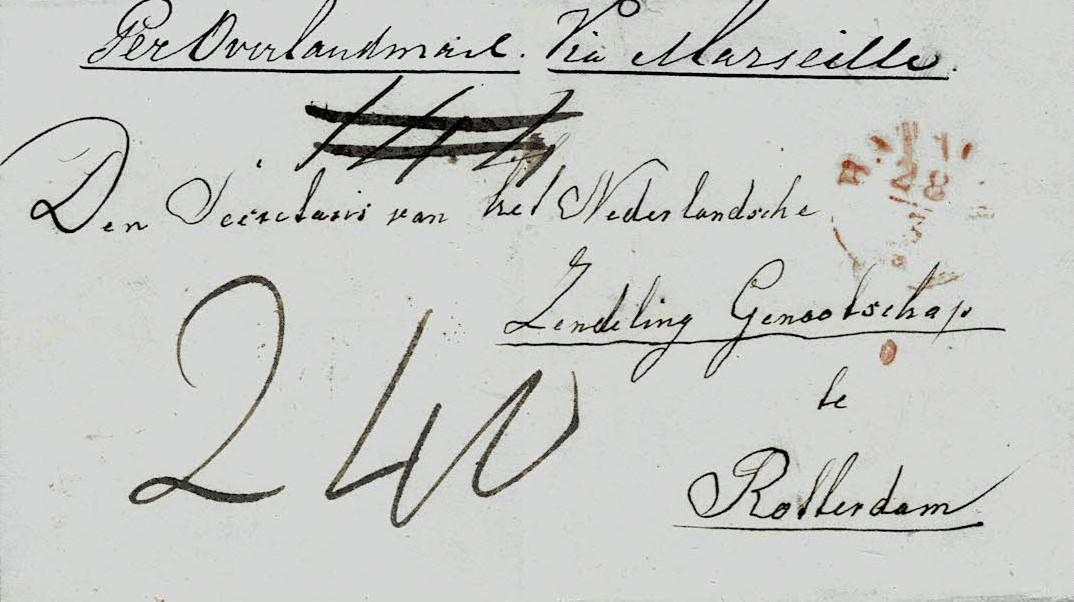 Per Overlandmail. Via Marseille.
Den Secretaris van het Nederlandsche
Zendeling Genootschap
te
Rotterdam
240